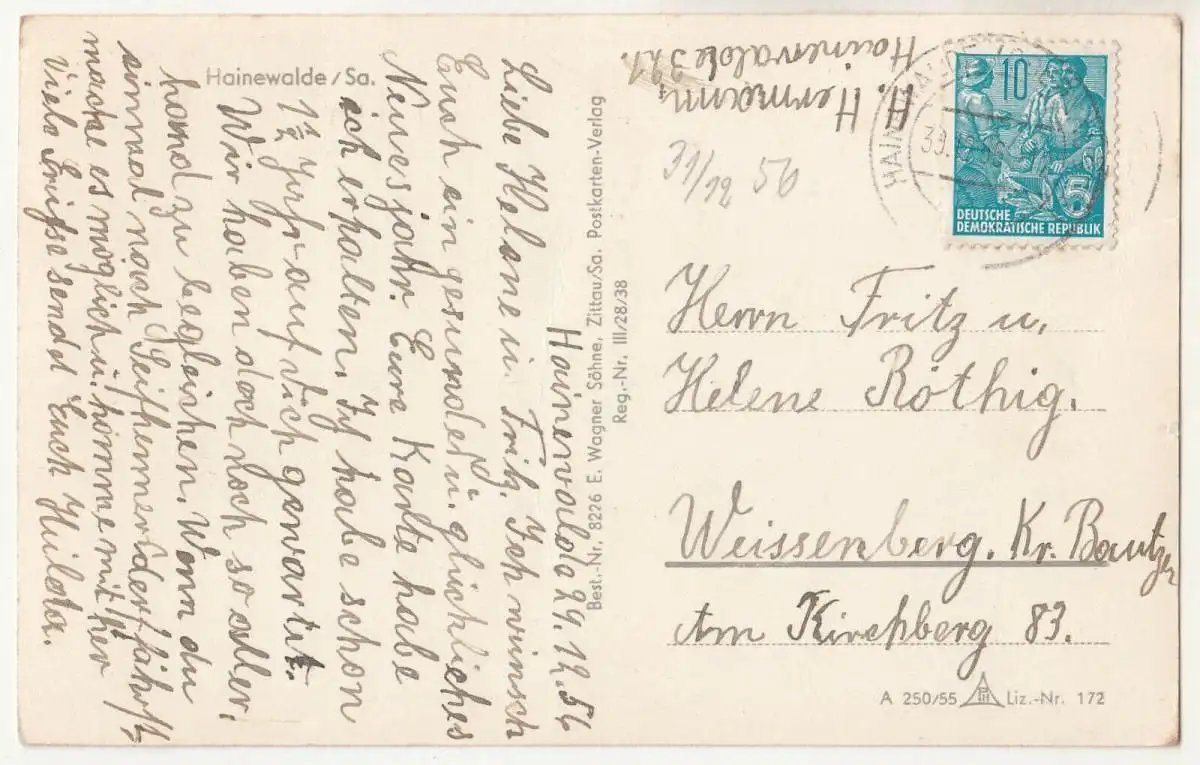 Hainewalde/Sa.
Hainewalde 29.12.56
Liebe Helene u. Fritz. Ich wünsch
Euch ein gesundes u. glückliches
Neuesjahr. Eure Karte habe
ich erhalten. Ich habe schon
auf dich gewartet.
Wir haben doch noch so aller
hand zu begleichen. Wenn du
einmal nach Seifhennersdorf fährst
mache es möglich u. komme mit her
Viele Grüße sendet Euch Hulda.
Best.-Nr. 8226 E. Wagner Söhne, Zittau/Sa. Postkarten-Verlag
Reg.-Nr. III/28/38
H. Hermann,
Hainewalde 321.
31/12 56
HAINEWALDE
10
5
DEUTSCHE
DEMOKRATISCHE REPUBLIK
Herrn Fritz u.
Helene Röthig.
Weissenberg. Kr. Bautzen
Am Kirchberg 83.
A 250/55 Liz.-Nr. 172